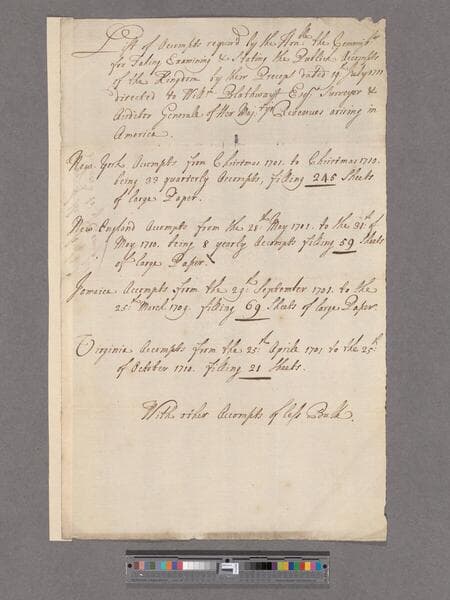 List of Accompts required by the Hon:ble the Commiss:rs
for Taking Examining & Stating the Publick Accompts
of the Kingdom by their Precept dated 19th July 1711
directed to Will:m Blathwayt Esq:r Surveyor &
Auditor Generale of Her Maj:tys Revenues arising in
America.
New York Accompts from Christmas 1701. to Christmas 1710.
being 33 quarterly Accompts, filling 245 Sheets
of large Paper.
New England Accompts from the 28:th May 1701. to the 31:st of
May 1710. being 8 yearly Accompts filling 59 Sheets
of large Paper.
Jamaica Accompts from the 29:th September 1701. to the
25:th March 1709. filling 69 Sheets of large Paper.
Virginia Accompts from the 25:th Aprile 1701 to the 25:th
of October 1710. filling 21 Sheets.
With other Accompts of less Bulk.